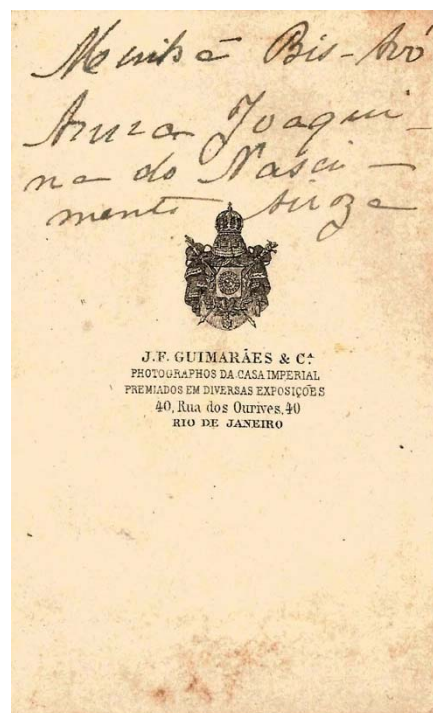 Minha Bis-Avó
Anna Joaqui-
na do Nasci-
mento
J.F. GUIMARÃES & Cª
PHOTOGRAPHOS DA CASA IMPERIAL
PREMIADOS EM DIVERSAS EXPOSIÇÕES
40, Rua dos Ourives, 40
RIO DE JANEIRO